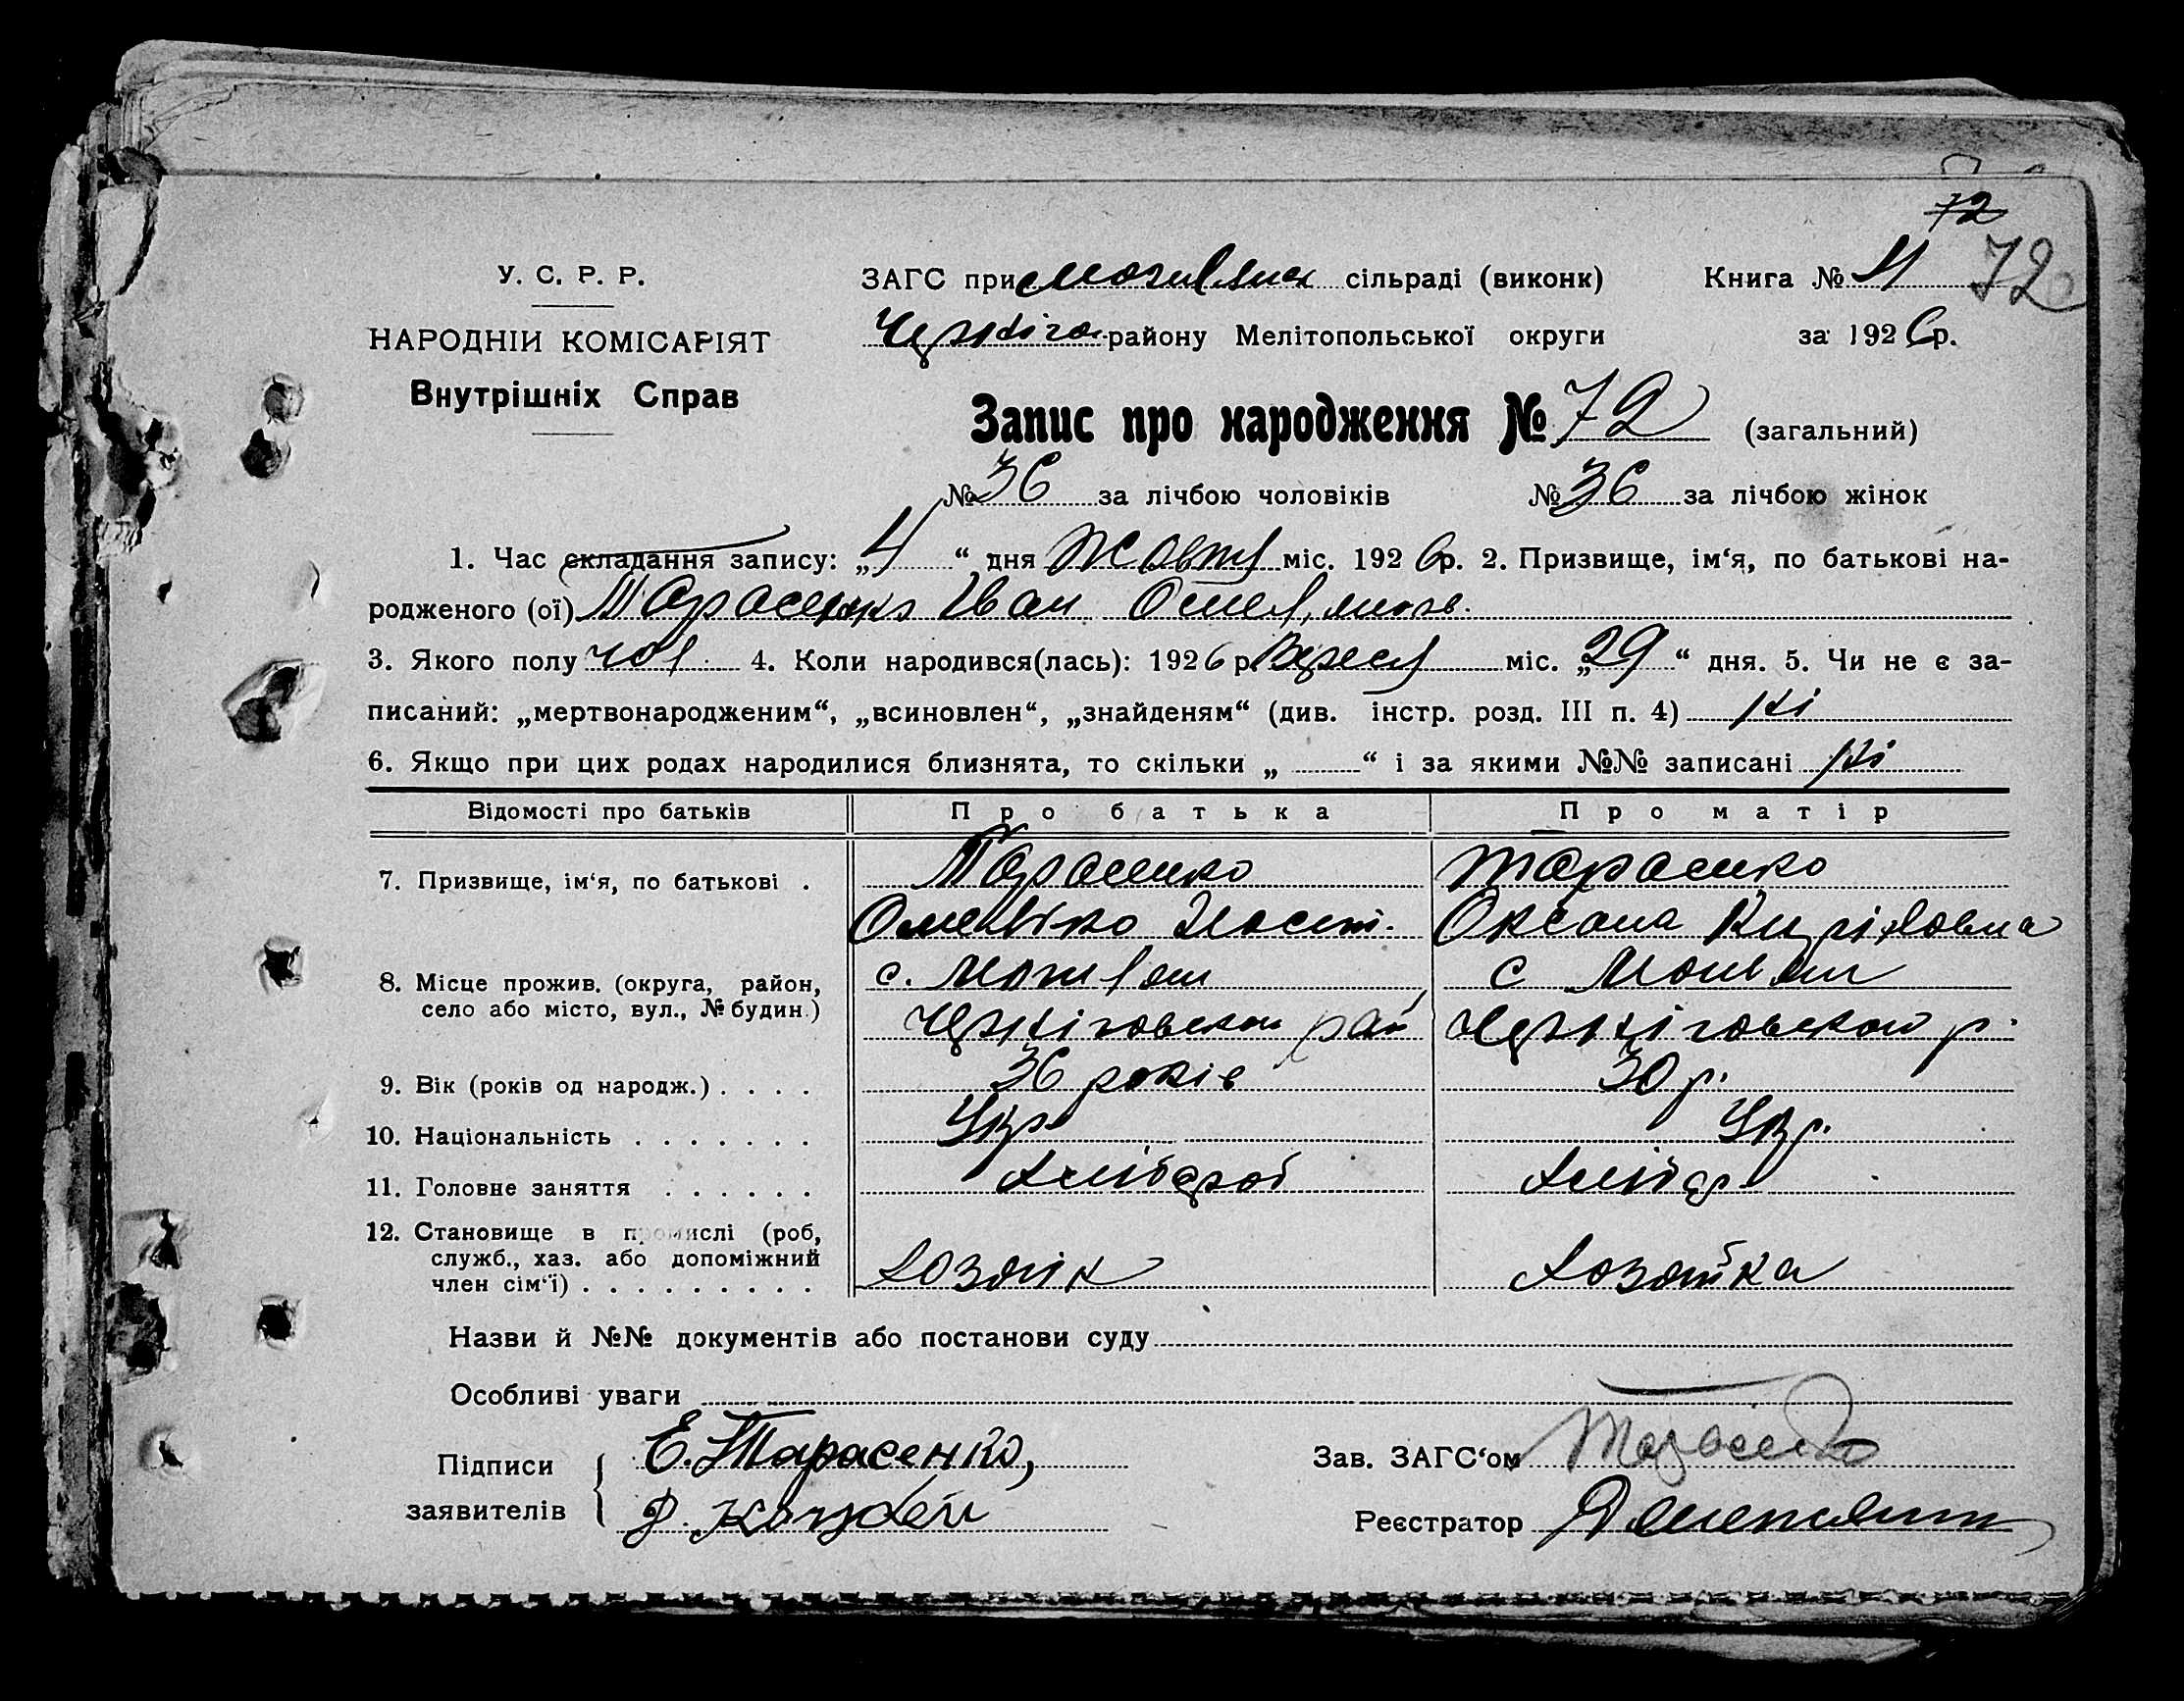 72
72
У. С. Р. Р.
ЗАГС при Могилянск сільраді (виконк)
Книга №
НАРОДНІЙ КОМІСАРІЯТ
Черніго району Мелітопольської округи
за 1926 р.
Внутрішніх Справ
Запис про народження № 72 (загальний)
№ 36 за лічбою чоловіків № 36 за лічбою жінок
1. Час складання запису: „4“ дня Жовтя міс. 1926 р. 2. Призвище, ім‘я, по батькові на-
родженого (ої) Тарасенко Іван Омелянов.
3. Якого полу чол 4. Коли народився(лась): 1926 р. Вересн міс. „29“ дня. 5. Чи не є за-
писаний: „мертвонародженим“, „всиновлен“, „знайденям“ (див. інстр. розд. III п. 4) Ні
6. Якщо при цих родах народилися близнята, то скільки „ “ і за якими №№ записані Ні
Відомості про батьків Про батька Про матір
7. Призвище, ім‘я, по батькові . Тарасенко Тарасенко
Омелько Оксана Кириловна
8. Місце прожив. (округа, район, с. Могиляни с Могиляни
село або місто, вул., № будин.)
Черніговского рай Черніговского р.
9. Вік (років од народж.) . . . . 36 років 30 р.
10. Національність . . . . . . . Укр Укр.
11. Головне заняття . . . . . . Хлібороб Хлібор
12. Становище в промислі (роб,
служб., хаз. або допоміжний
член сім‘ї) . . . . . . . . . Хозяїн Хозяйка
Назви й №№ документів або постанови суду
Особливі уваги
Підписи Е. Тарасенко, Зав. ЗАГС‘ом Тарасенко
заявителів Реєстратор